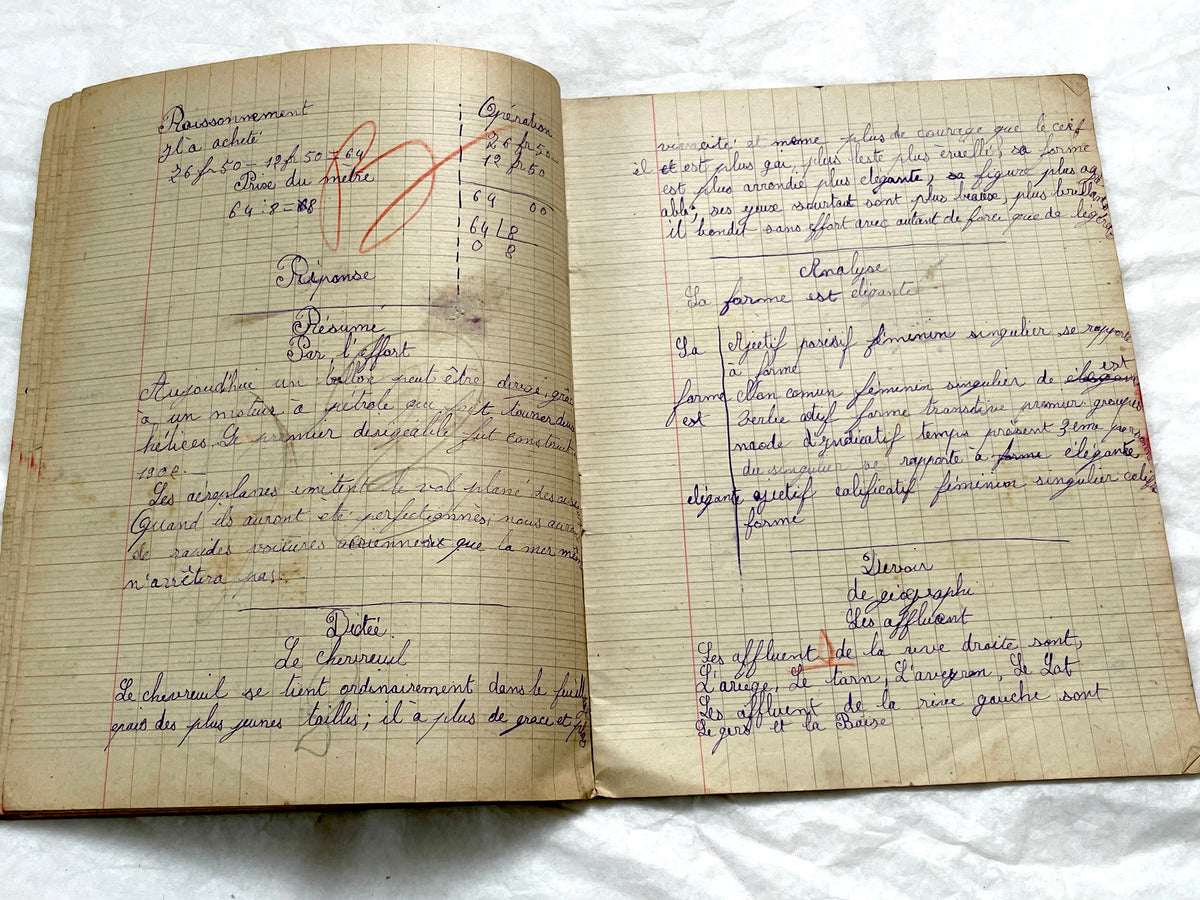 Raisonnement
Il a acheté
26 fr 50 – 12 fr 50 = 64
Prix du mètre
64 : 8 = 8
Opération
26 fr 50
12 fr 50
64 00
64 8
0 8
B
Réponse
Résumé
Par l'effort
Aujourd'hui un ballon peut être dirigé, grâ
à un moteur à pétrole qui fait tourner deux
hélices. Le premier dirigeable fut construit
190
Les aéroplanes imitent le vol plané des oise
Quand ils auront été perfectionnés, nous auro
de rapides voitures aériennes que la mer mêm
n'arrêtera pas.
Dictée
Le chevreuil
Le chevreuil se tient ordinairement dans le feuill
épais des plus jeunes tailles ; il a plus de grace et plus
vivacité et même plus de courage que le cerf
il est plus gai plus leste plus éveillé, sa forme
est plus arrondie plus élégante, sa figure plus agr
able, ses yeux sourtout sont plus beaux, plus brillants
il bondit sans effort avec autant de force que de légèreté
Analyse
La forme est élégante
La ajectif posisif féminin singulier se rapporte
à forme
forme Non comun féminin singulier de est
est Verbe actif forme transitive premier groupe
mode d'Indicatif temps présent 3eme pers
du singulier se rapporte à forme élégante
élégante ajectif calificatif féminin singulier calif
forme
Devoir
de géographi
Les affluent
Les affluent de la rive droite sont,
L'ariège, Le tarn, L'aveyron, Le Lot
Les affluent de la rive gauche sont
Le gers et la Baise